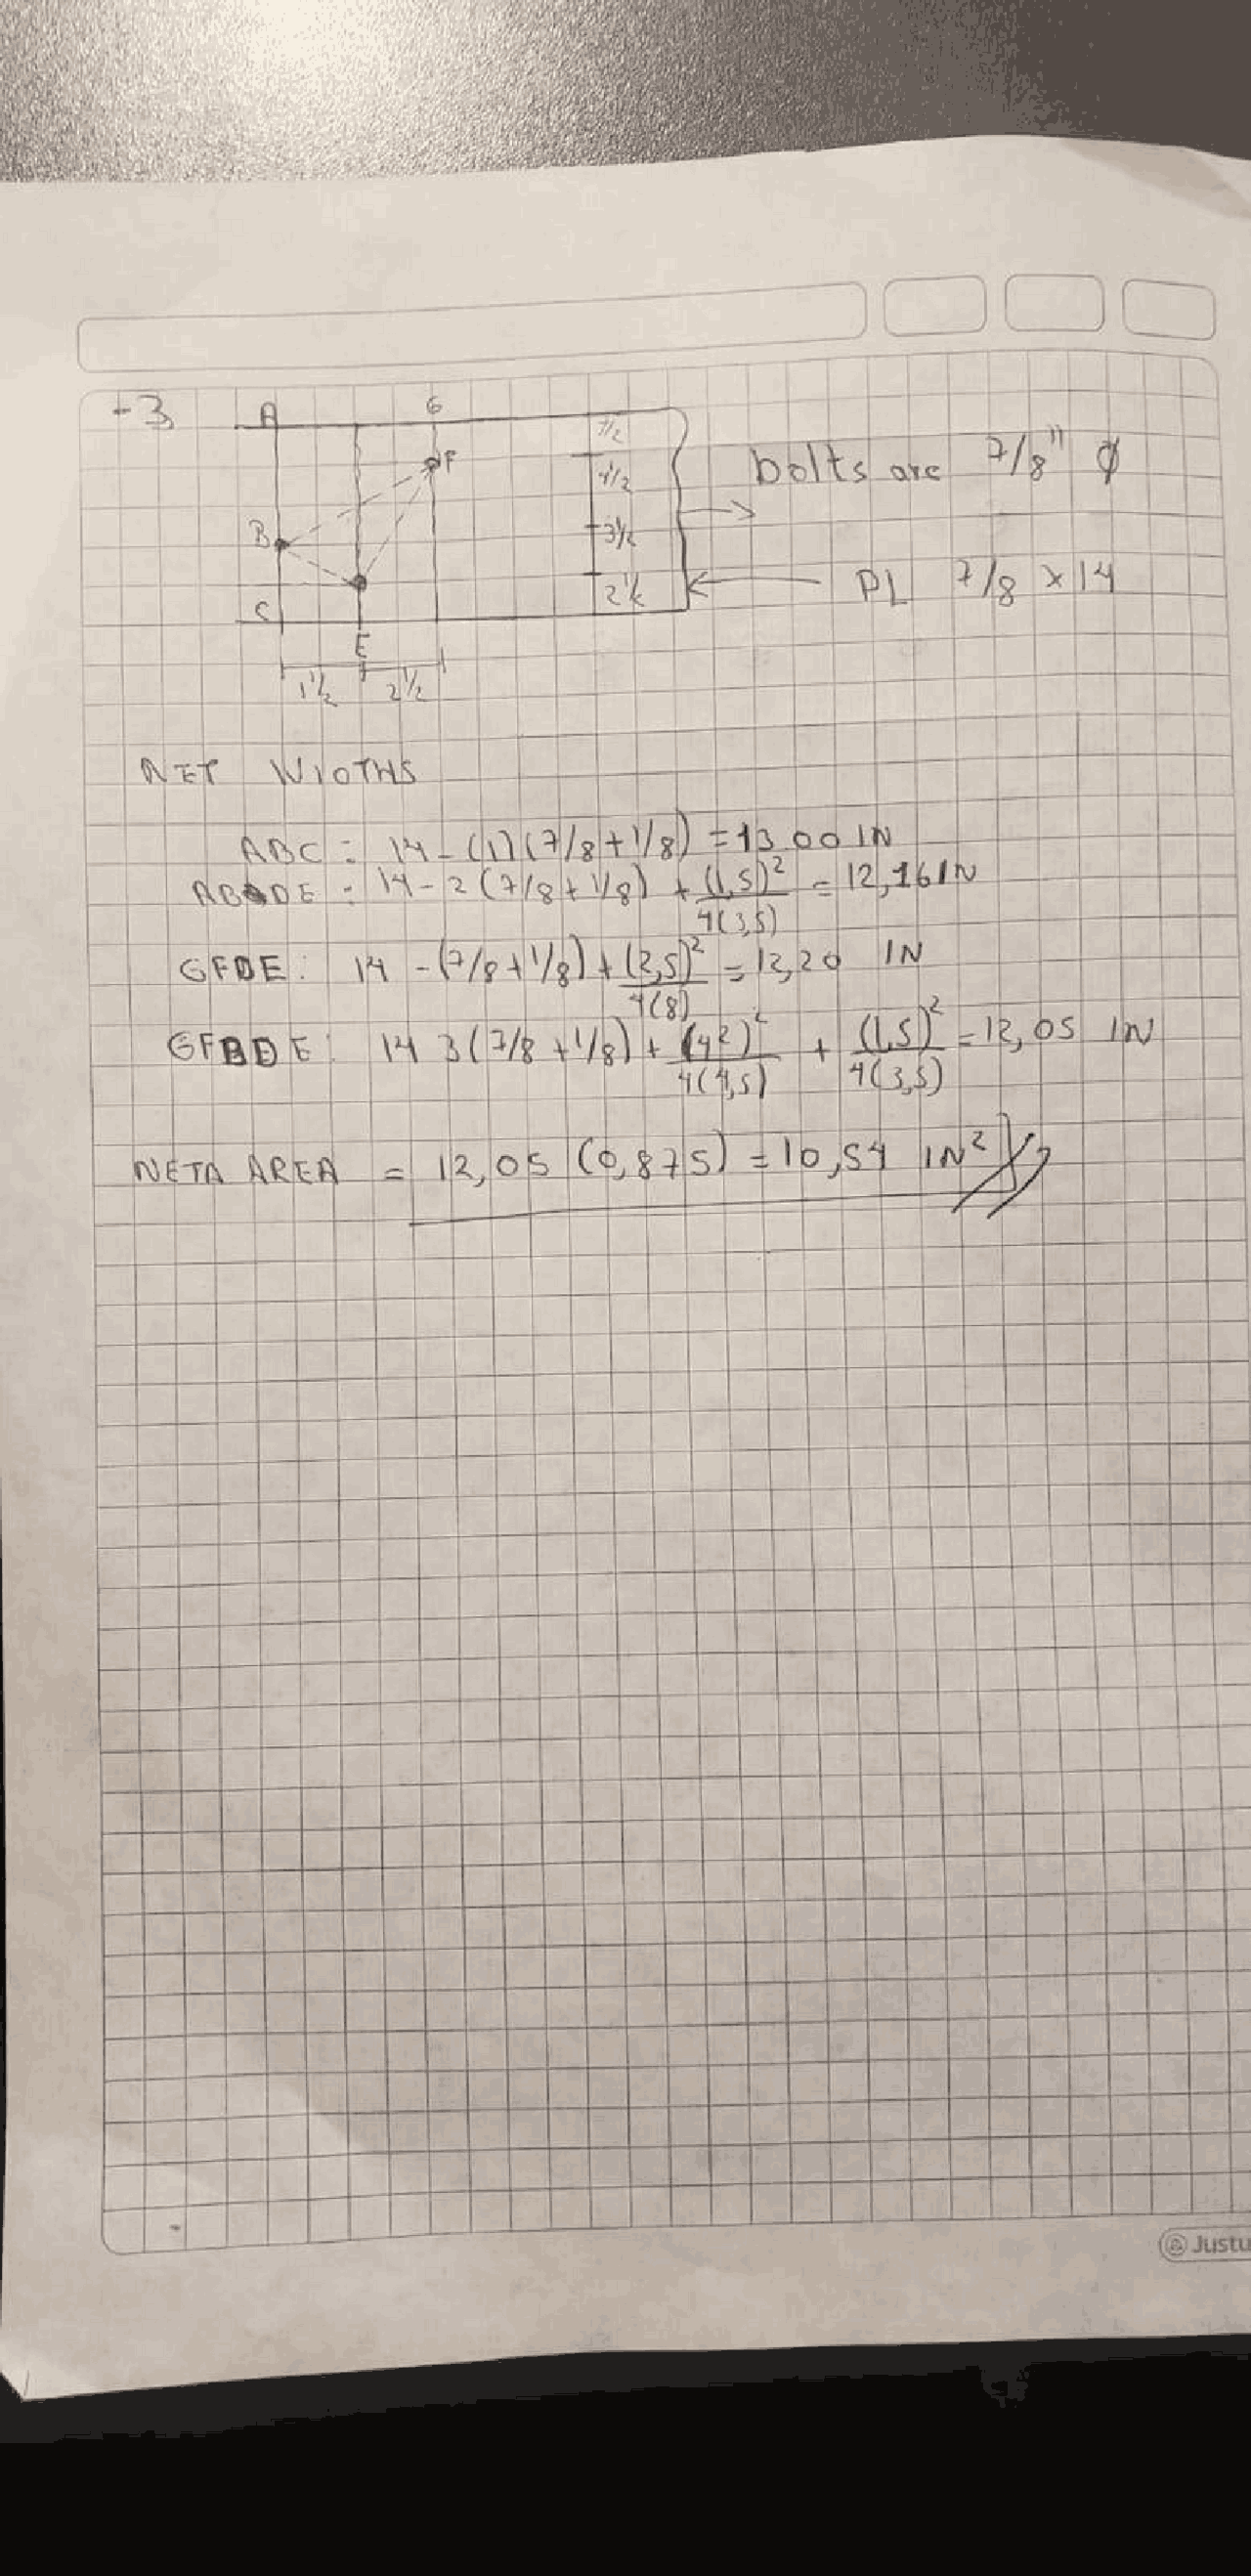 -3
A
G
F
B
C
E
3 1/2
4 1/2
3 1/2
2 1/2
1 1/2 2 1/2
bolts are 7/8" φ
PL 7/8 x 14
NET WIDTHS
ABC = 14 - (1)(7/8 + 1/8) = 13.00 IN
ABDE = 14 - 2 (7/8 + 1/8) + (1,5)² / 4(3,5) = 12,16 IN
GFDE: 14 - (7/8 + 1/8) + (2,5)² / 4(8) = 12,20 IN
GFBDE: 14 3(7/8 + 1/8) + (4²)² / 4(4,5) + (1,5)² / 4(3,5) = 12,05 IN
NETA AREA = 12,05 (0,875) = 10,54 IN²
Justu